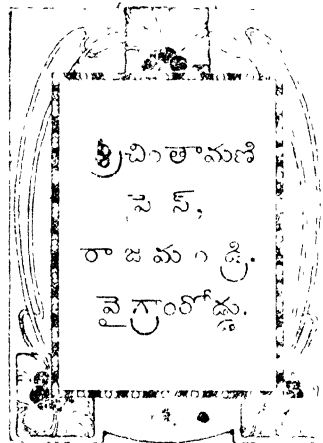 శ్రీచింతామణి
ప్రెస్,
రాజమండ్రి.
వైగ్రాంరోడ్డు.